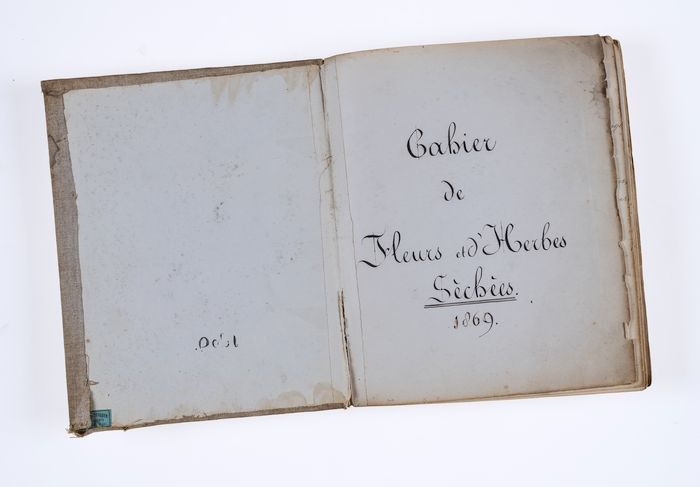 Cahier
de
Fleurs et d'Herbes
Sèchèes.
1869.